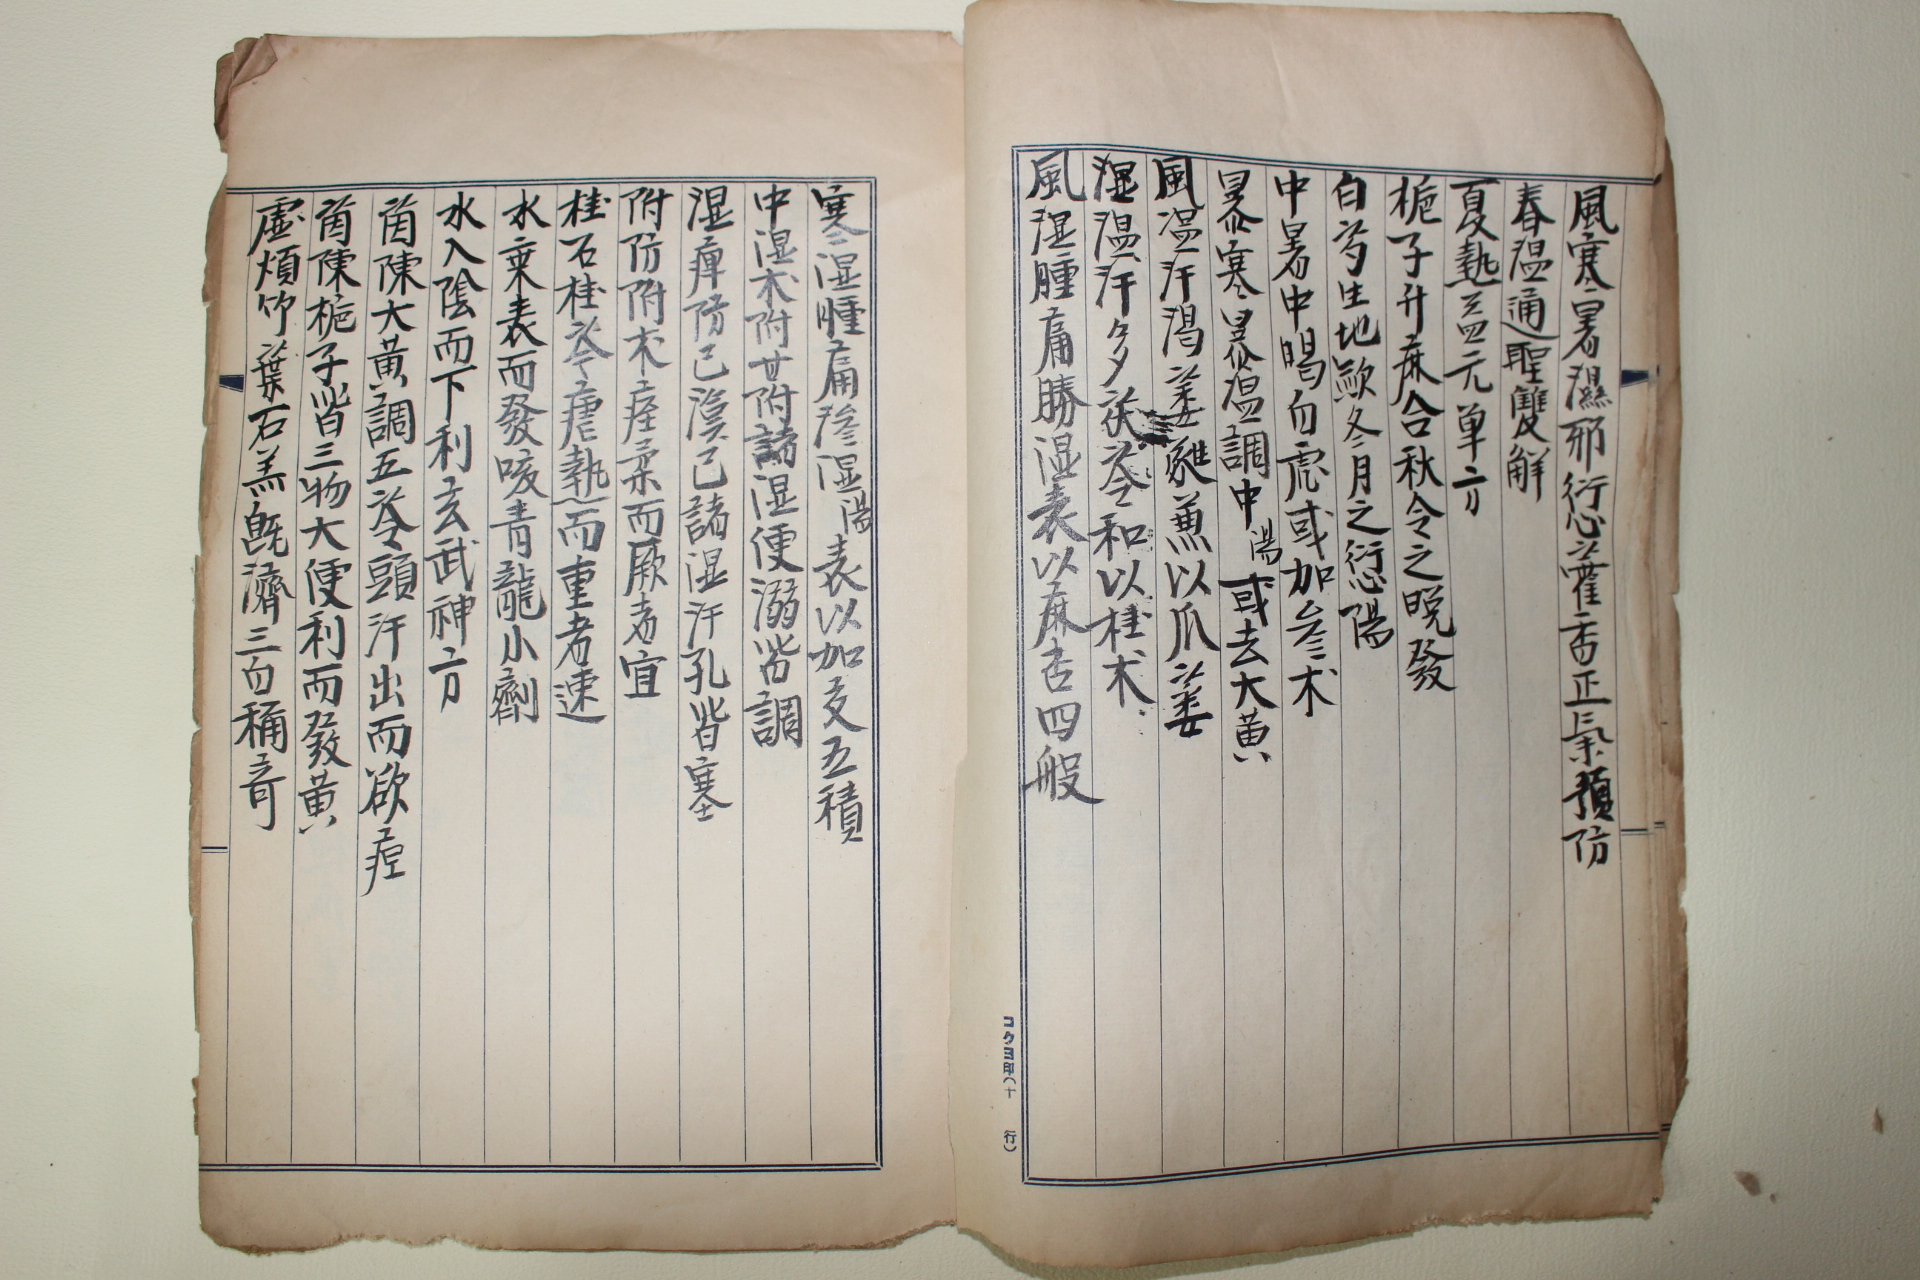 風寒暑濕邪衍愆藿香正氣預防
春温通聖雙解
夏熱三四元单方
梔子升麻合秋令之晩發
白芍生地歟冬月之衍愆陽
中暑中暍白虎或加参术
暴寒暴温調中湯或去大黄
風温汗渇葳蕤兼以爪蒌
湿温汗多茯苓和以桂术
風湿腫痛勝湿表以麻杏四般
寒湿腫痛滲湿湯表以加支五積
中湿术附甘附諸湿便溺皆調
湿痺防己漢己諸湿汗孔皆塞
附防附术痓柔而厥者宜
桂石桂苓瘧熱而重者速
水乗表而發咳青龍小劑
水入陰而下利玄武神方
茵陳大黄調五苓頭汗出而欲疸
茵陳梔子皆三物大便利而發黄
虚煩竹葉石羔既濟三白稱奇
コクヨ印(十行)